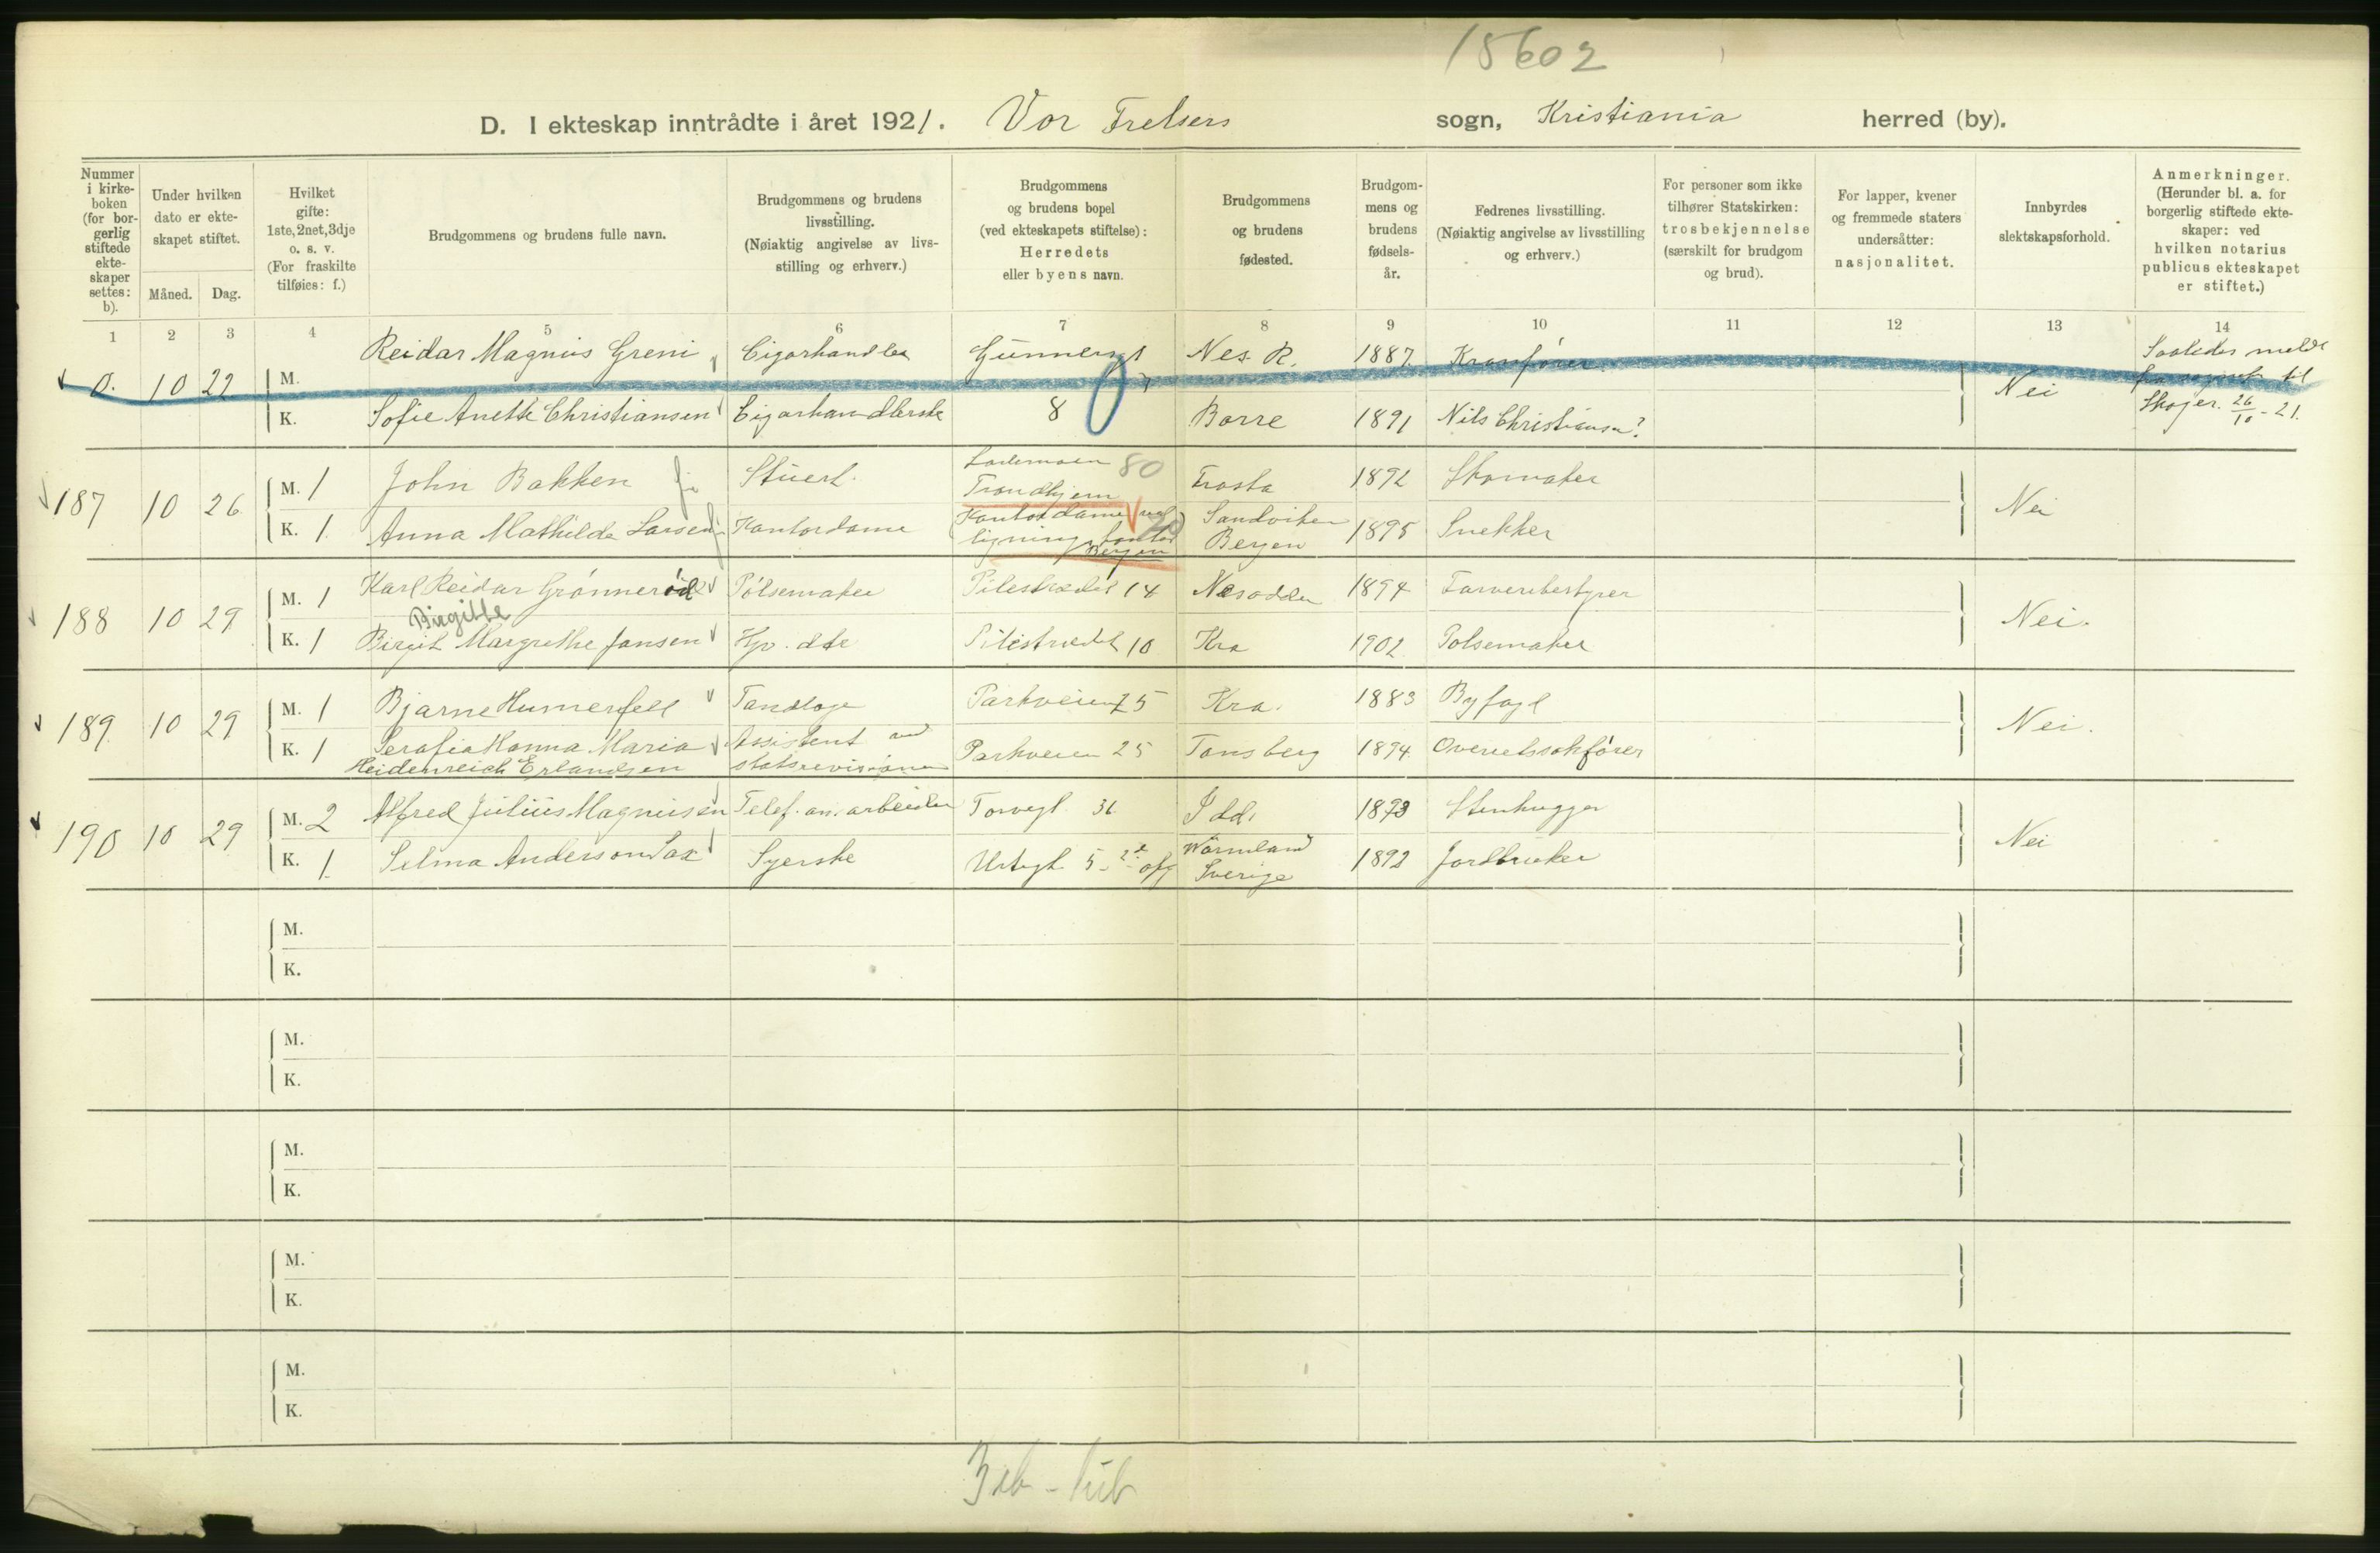 15602
D. I ekteskap inntrådte i året 1921. Vor Frelsers sogn, Kristiania herred (by).
Nummer i kirke-boken (for bor-gerlig stiftede ekte-skaper settes: b).
Under hvilken dato er ekte-skapet stiftet.
Måned. Dag.
Hvilket gifte: 1ste, 2net, 3dje o. s. v. (For fraskilte tilføies: f.)
Brudgommens og brudens fulle navn.
Brudgommens og brudens livsstilling. (Nøiaktig angivelse av livs-stilling og erhverv.)
Brudgommens og brudens bopel (ved ekteskapets stiftelse): Herredets eller byens navn.
Brudgommens og brudens fødested.
Brudgom-mens og brudens fødsels-år.
Fedrenes livsstilling. (Nøiaktig angivelse av livsstilling og erhverv.)
For personer som ikke tilhører Statskirken: trosbekjennelse (særskilt for brudgom og brud).
For lapper, kvener og fremmede staters undersåtter: nasjonalitet.
Innbyrdes slektskapsforhold.
Anmerkninger. (Herunder bl. a. for borgerlig stiftede ekte-skaper: ved hvilken notarius publicus ekteskapet er stiftet.)
1 2 3 4 5 6 7 8 9 10 11 12 13 14
0. 10 22 M. Reidar Magnus Greni Cigarhandler Gunnersgt Nes. R. 1887. Nei Saaledes meldt
til
K. Sofie Anette Christiansen Cigarhandlerske 8 Borre 1891 Nils Christiansen? Skoger. 26/10 - 21.
187 10 26 M. 1 John Bakken Stuert. Lademoen 80 Trondhjem Frosta 1892 Skomaker Nei
K. 1 Anna Mathilde Larsen Kontordame (Kontordame ved ligningskontor Bergen Sandviken Bergen 1895 Snekker
188 10 29 M. 1 Karl Reidar Grønnerød Pølsemaker Pilestrædet 14 Nesodden 1894 Farveribestyrer Nei.
Birgitte
K. 1 Birgit Margrethe Jansen Hp. dtr Pilestrædet 10 Kra 1902 Pølsemaker
189 10 29 M. 1 Bjarne Humerfelt Tandlæge Parkveien 25 Kra. 1883 Byfogt Nei.
K. 1 Serafia Hanna Maria Heidenreich Erlandsen Assistent ved statsrevisionen Parkveien 25 Tønsberg 1894 Overretssakfører
190 10 29 M. 2 Alfred Julius Magnussen Telef. an. arbeider Torvegt 36 Idd. 1873 Stenhugger Nei
K. 1 Selma Anderson Sax Syerske Urtegt 5 - 2 opg Wärmland Sverige 1892 Jordbruker
M.
K.
M.
K.
M.
K.
M.
K.
M.
K.